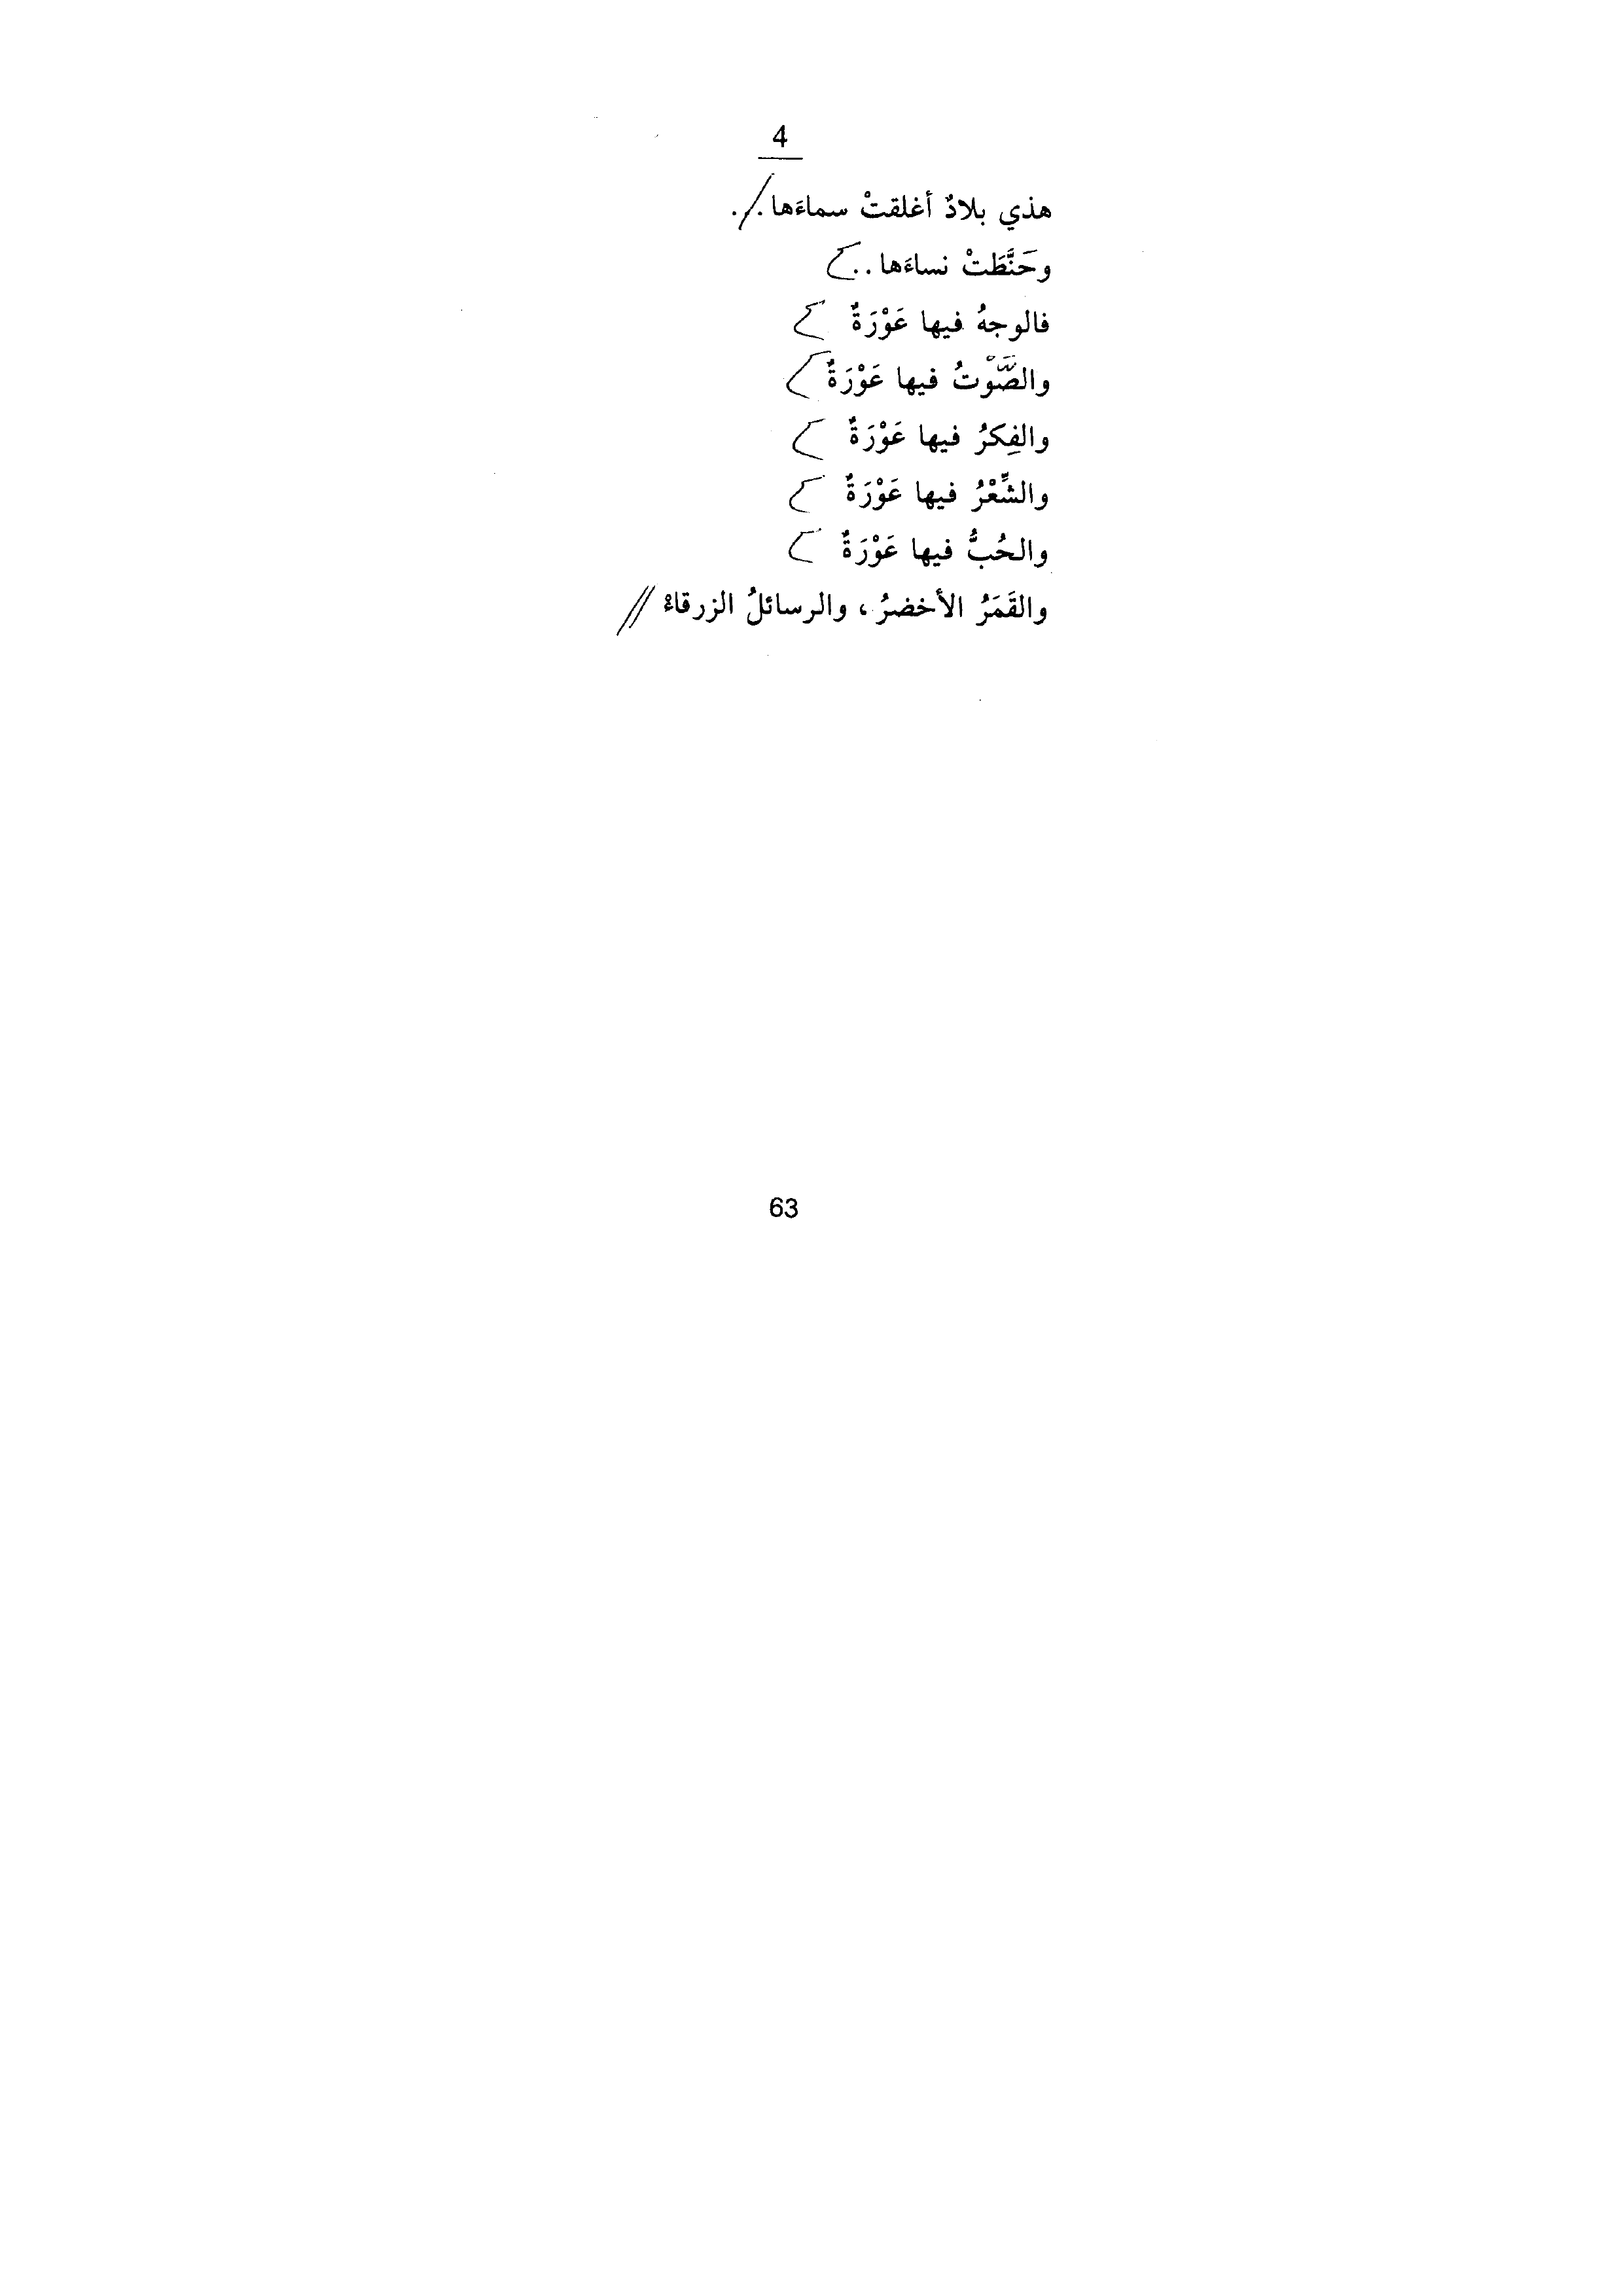 4
هذي بلادٌ أغلقتْ سماءَها . . .
وحَنَّطَتْ نساءَها . .
فالوجهُ فيها عَوْرَةٌ
والصَّوْتُ فيها عَوْرَةٌ
والفِكرُ فيها عَوْرَةٌ
والشِّعْرُ فيها عَوْرَةٌ
والحُبُّ فيها عَوْرَةٌ
والقَمَرُ الأخضرُ ، والرسائلُ الزرقاءْ
63